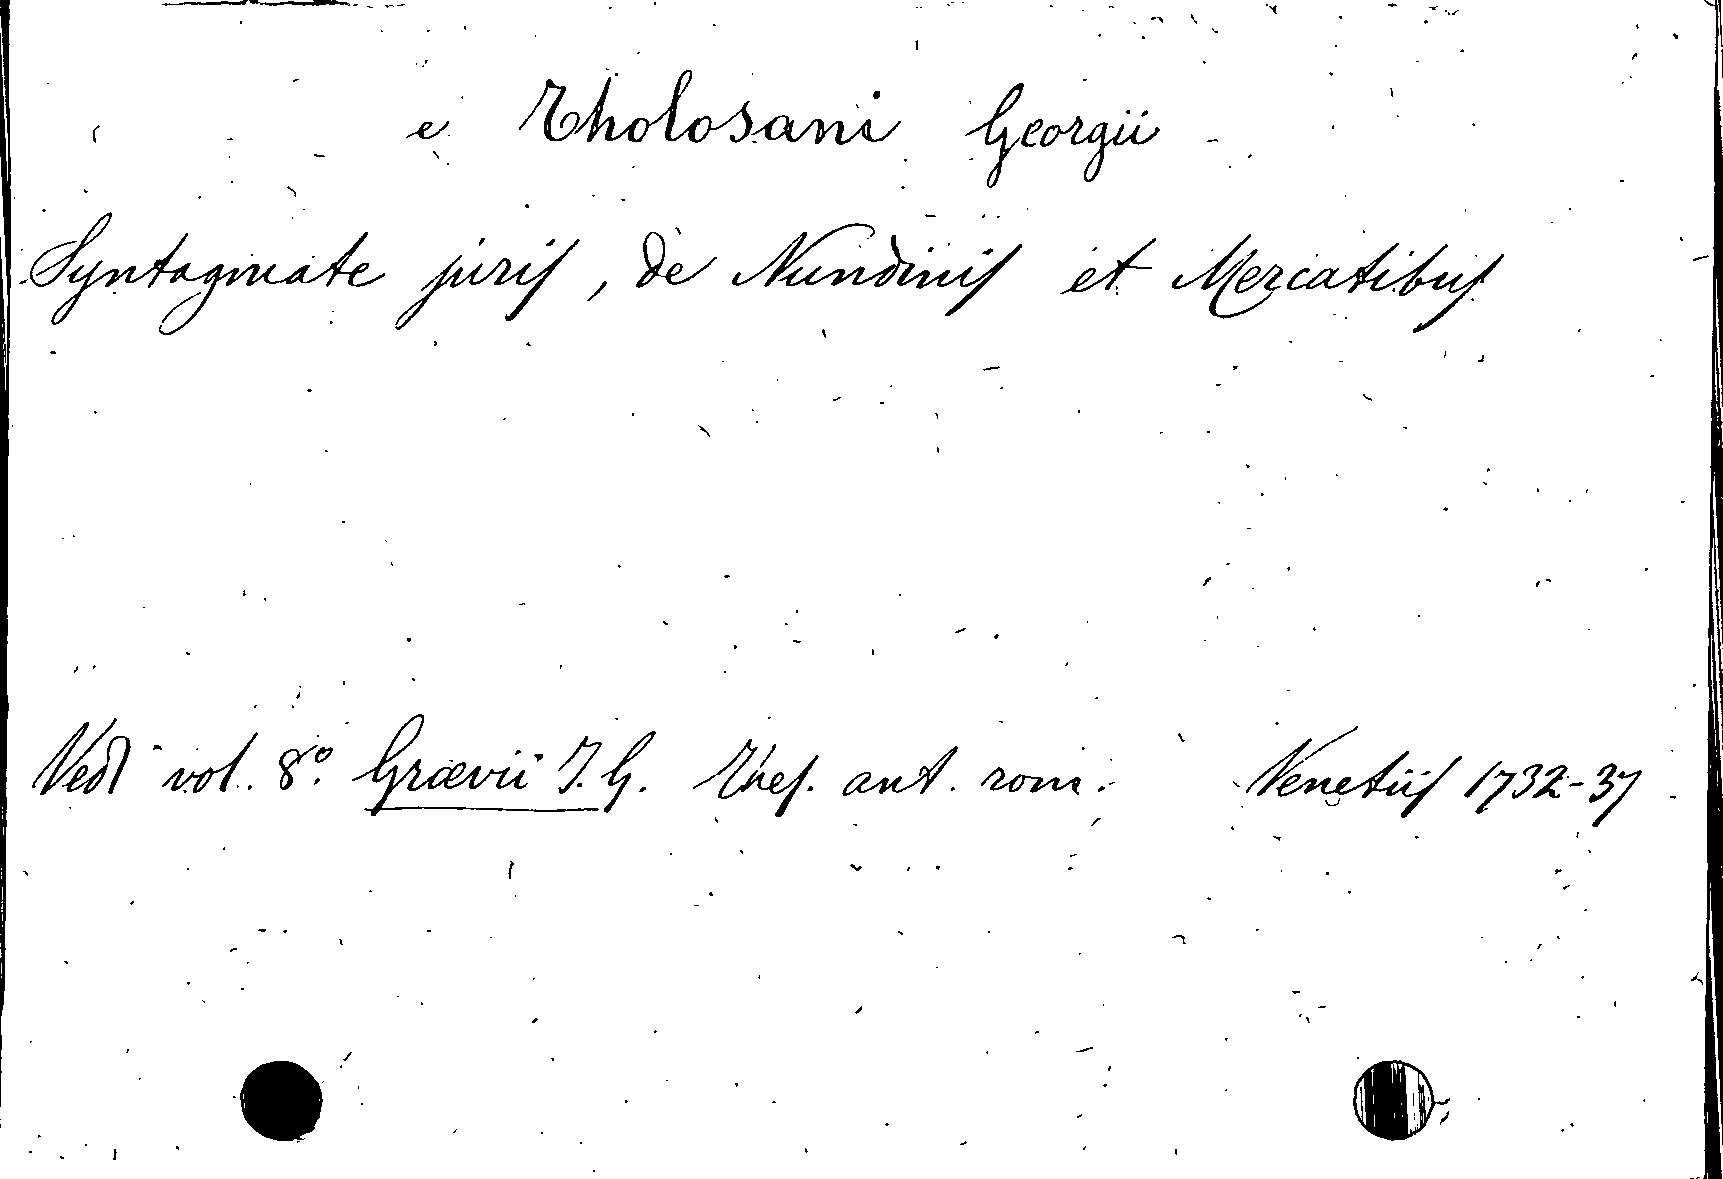 e Tholosani Georgii
Syntagmate juris, de Nundinis et Mercatibus
Vedi vol. 8°. Grævii J. G. Thes. ant. rom. Venetiis 1732-37